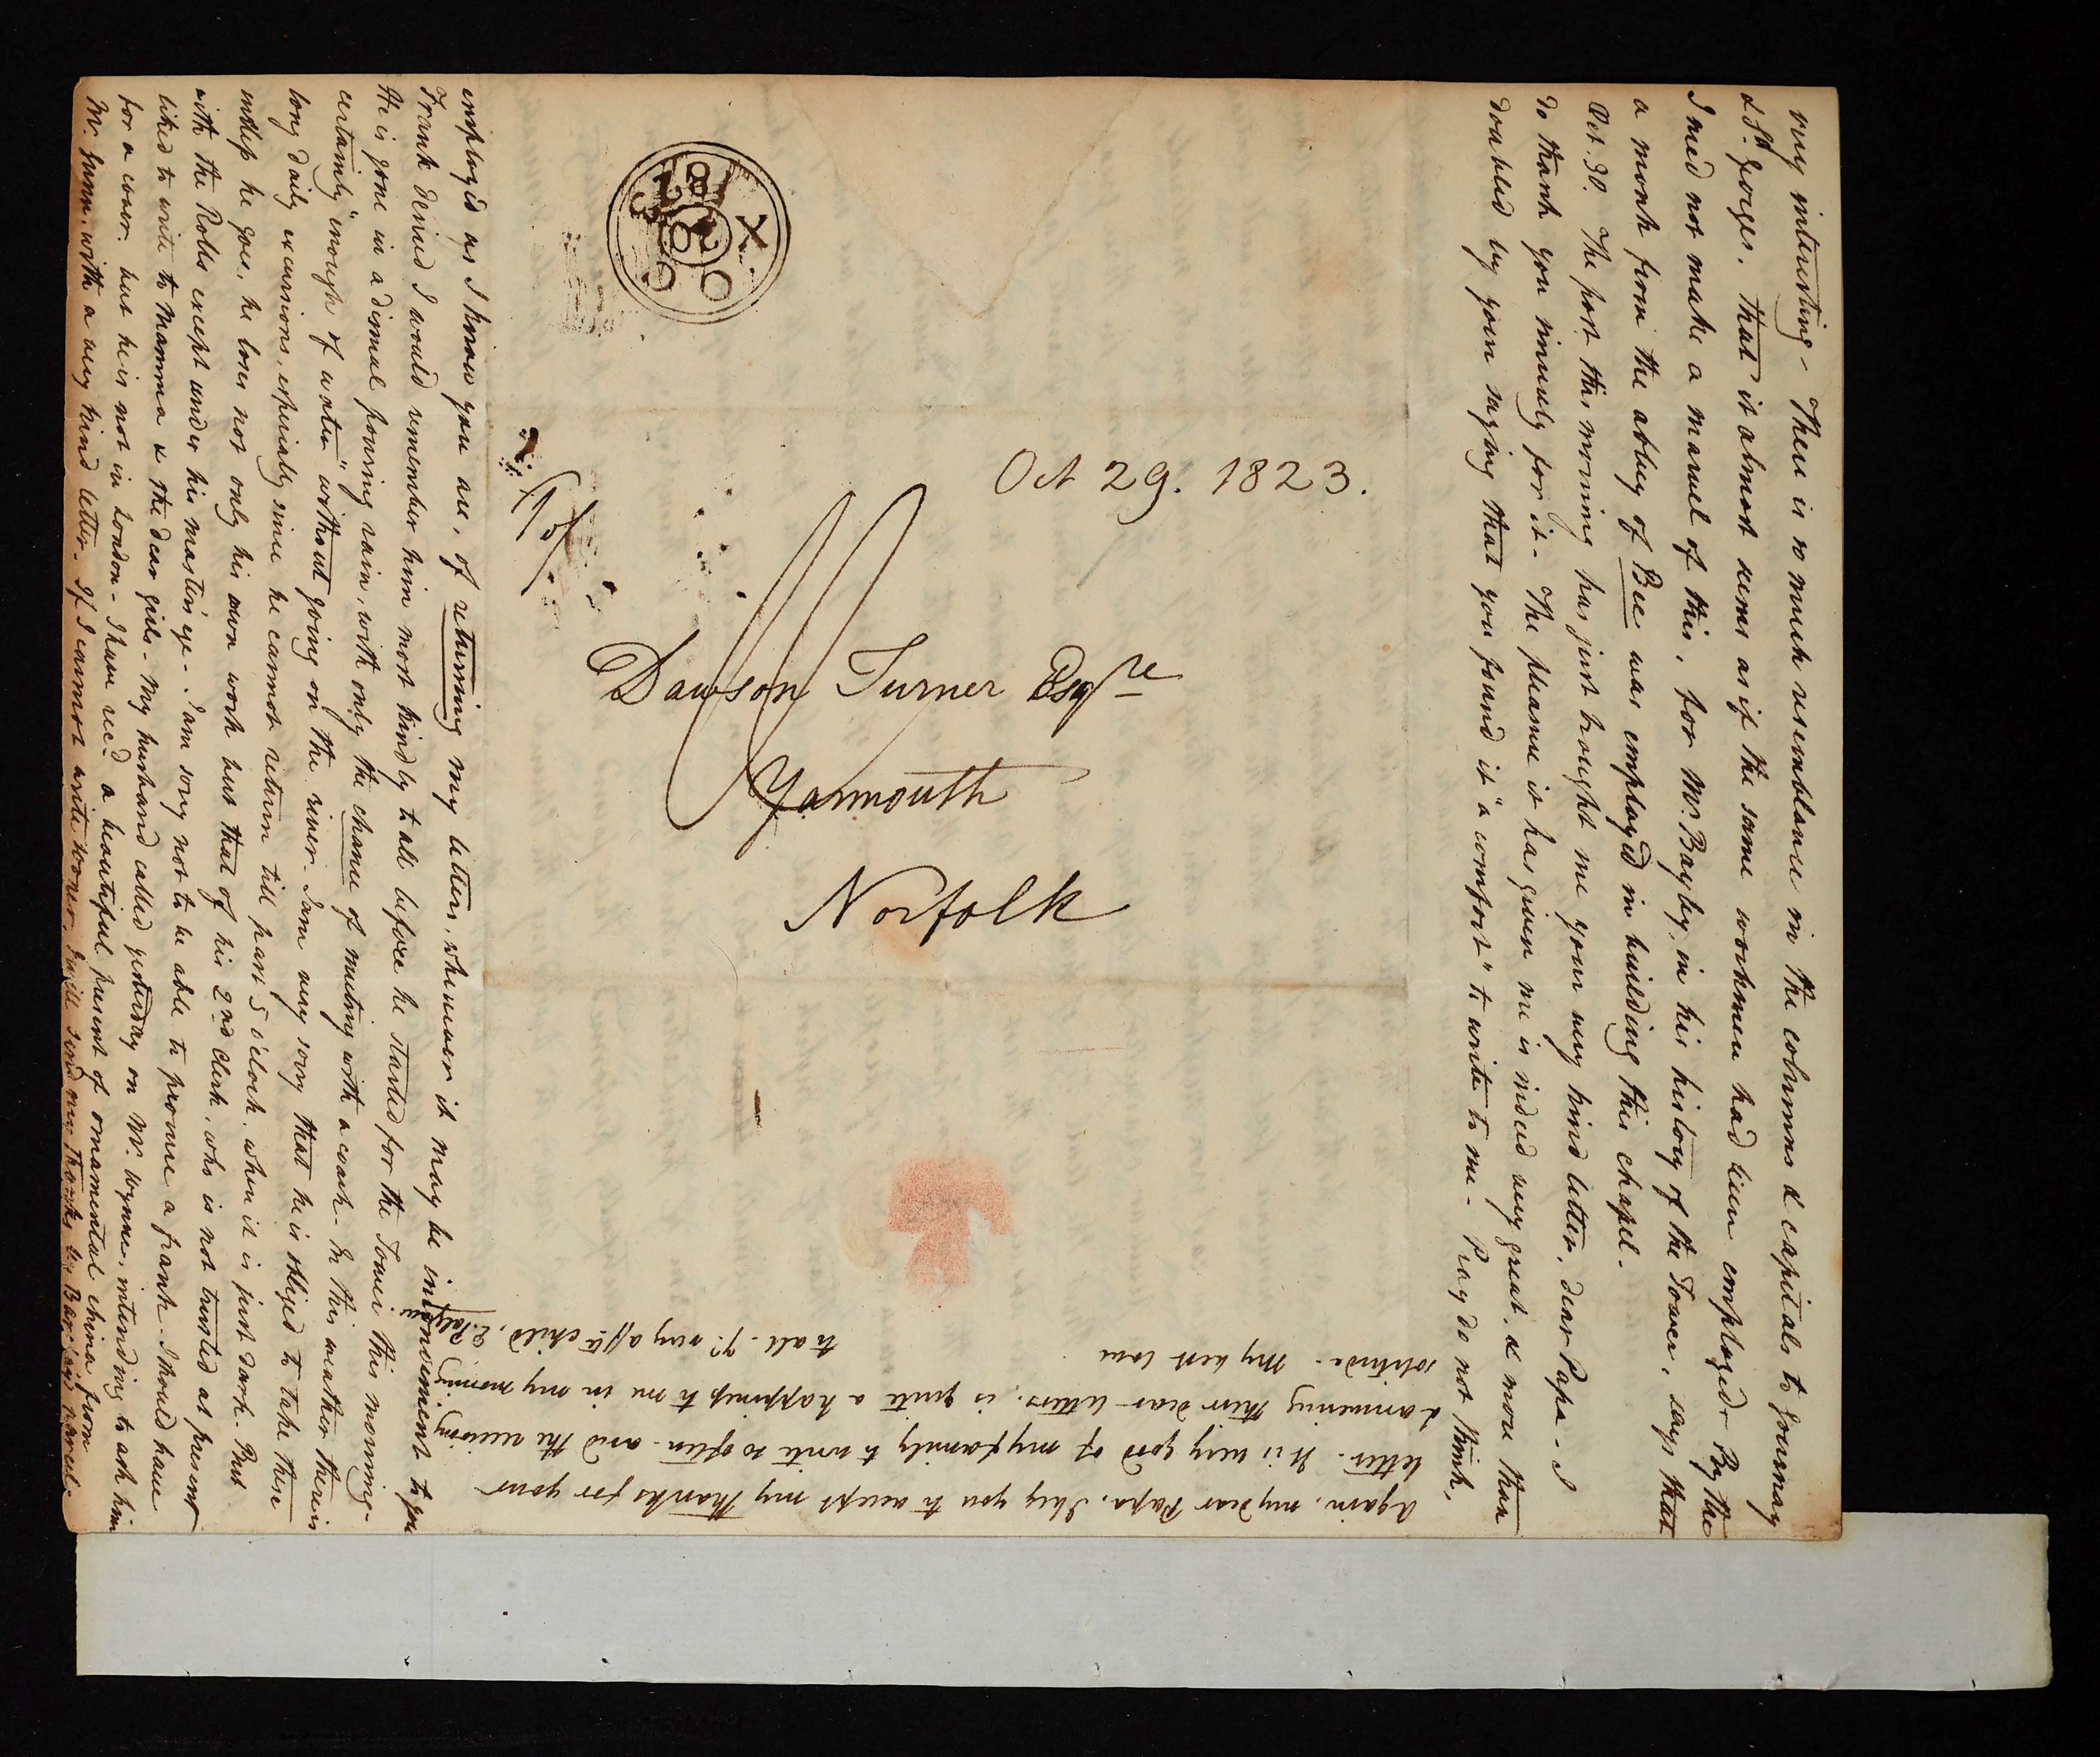 very interesting - There is so much resemblance in the columns & capitals to Jummay
& St. Georges. that it almost seems as if the same workmen had been employed. By the
I need not make a marvel of this, for Mr. Bayley, in his history of the Tower, says that
a monk from the abbey of Bec was employ'd in building this chapel -
Oct. 30. The post this morning has just brought me your very kind letter, dear Papa - I
do thank you sincerely for it - The pleasure it has given me is indeed very great, & more than
doubled by your saying that you found it "a comfort" to write to me - Pray do not think,
Oct 29. 1823.
Dawson Turner Esqre
Yarmouth
Norfolk
employ'd as I know you are, of returning my letters, whenever it may be inconvenient to you
Frank desired I would remember him most kindly to all before he started for the Tower this morning -
He is gone in a dismal pouring rain, with only the chance of meeting with a coach - In this weather there is
certainly "enough of water" without going on the river - I am very sorry that he is obliged to take these
long daily excursions, especially since he cannot return till past 5 o'clock, when it is just dark. But
unless he goes, he loses not only his own work but that of his 2nd Clerk, who is not trusted at present
with the Rolls except under his master's eye - I am sorry not to be able to procure a frank - I should have
liked to write to Mamma & the dear girls - My husband called yesterday on Mr. Wynne, intending to ask him
for a cover, but he is not in London - I have recd. a beautiful present of ornamental china from
Mr. Gunn, with a very kind letter - If I cannot write sooner, I will send my thanks by Bar' parcel -
Again, my dear Papa, I beg you to accept my thanks for your
letter - It is very good of my family to write so often - and the receiving
& answering their dear letters, is quite a happiness to me in my morning
solitude - My best love
to all - Yr. very affte child, E. Palgrave